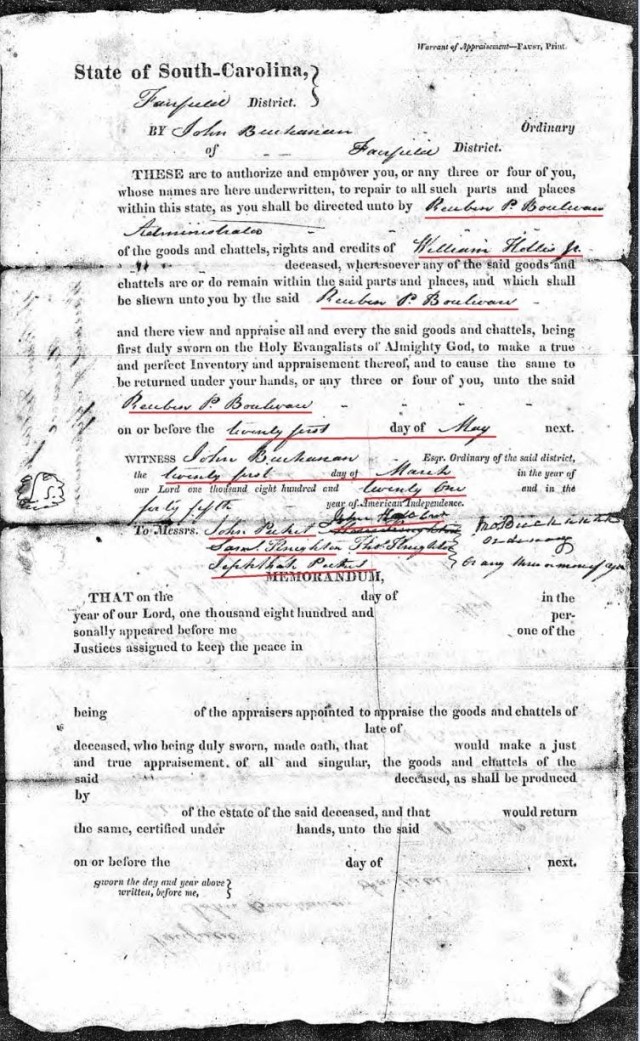 Warrant of Appraisement—FAUST, Print.
State of South-Carolina,
Fairfield District.
BY John Buchanan Ordinary
of Fairfield District.
THESE are to authorize and empower you, or any three or four of you,
whose names are here underwritten, to repair to all such parts and places
within this state, as you shall be directed unto by Reuben P. Boulware
Administrator
of the goods and chattels, rights and credits of William Hollis Jr.
deceased, wheresoever any of the said goods and
chattels are or do remain within the said parts and places, and which shall
be shewn unto you by the said Reuben P. Boulware
and there view and appraise all and every the said goods and chattels, being
first duly sworn on the Holy Evangelists of Almighty God, to make a true
and perfect Inventory and appraisement thereof, and to cause the same to
be returned under your hands, or any three or four of you, unto the said
Reuben P. Boulware
on or before the twenty first day of May next.
WITNESS John Buchanan Esqr. Ordinary of the said district,
the twenty first day of March in the year of
our Lord one thousand eight hundred and twenty one and in the
forty fifth year of American Independence.
L.S.
To Messrs. John Picket
Saml. Thos.
Jephthah Picket or any three or more of you
MEMORANDUM,
THAT on the day of in the
year of our Lord, one thousand eight hundred and per-
sonally appeared before me one of the
Justices assigned to keep the peace in
being of the appraisers appointed to appraise the goods and chattels of
late of
deceased, who being duly sworn, made oath, that would make a just
and true appraisement of all and singular, the goods and chattels of the
said deceased, as shall be produced
by
of the estate of the said deceased, and that would return
the same, certified under hands, unto the said
on or before the day of next.
Sworn the day and year above
written, before me,